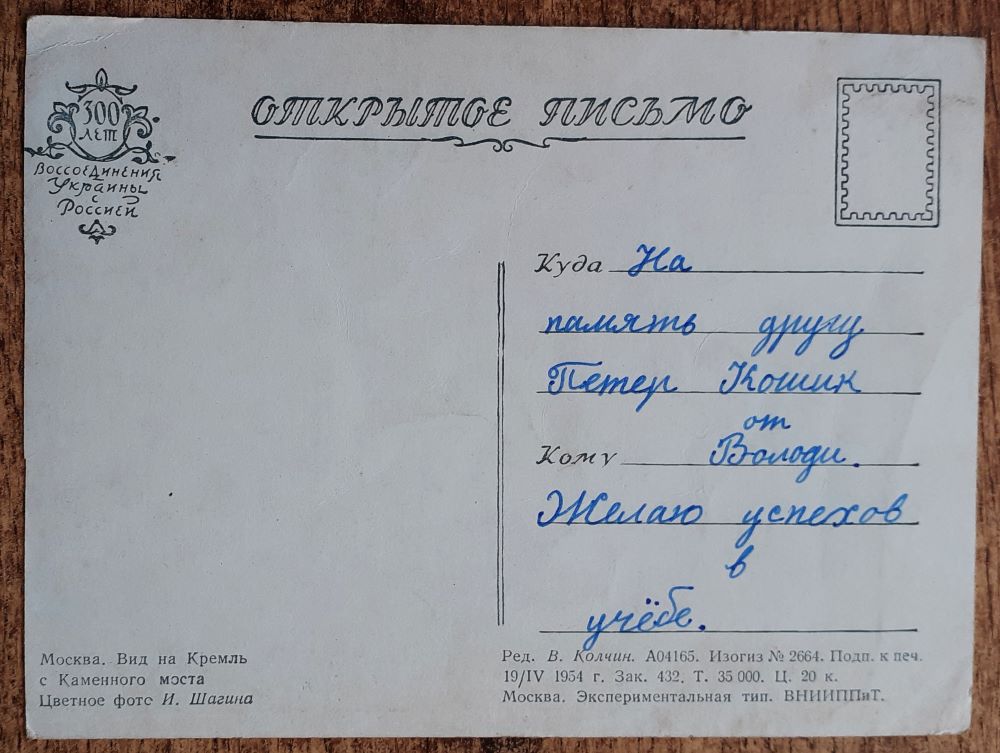 300
лет
Воссоединения
Украины
с
Россией
ОТКРЫТОЕ ПИСЬМО
Куда На
память другу
Петер Кошик
от
Кому Володи.
Желаю успехов
в
учёбе.
Москва. Вид на Кремль
с Каменного моста
Цветное фото И. Шагина
Ред. В. Колчин. А04165. Изогиз № 2664. Подп. к печ.
19/IV 1954 г. Зак. 432. Т. 35 000. Ц. 20 к.
Москва. Экспериментальная тип. ВНИИППиТ.